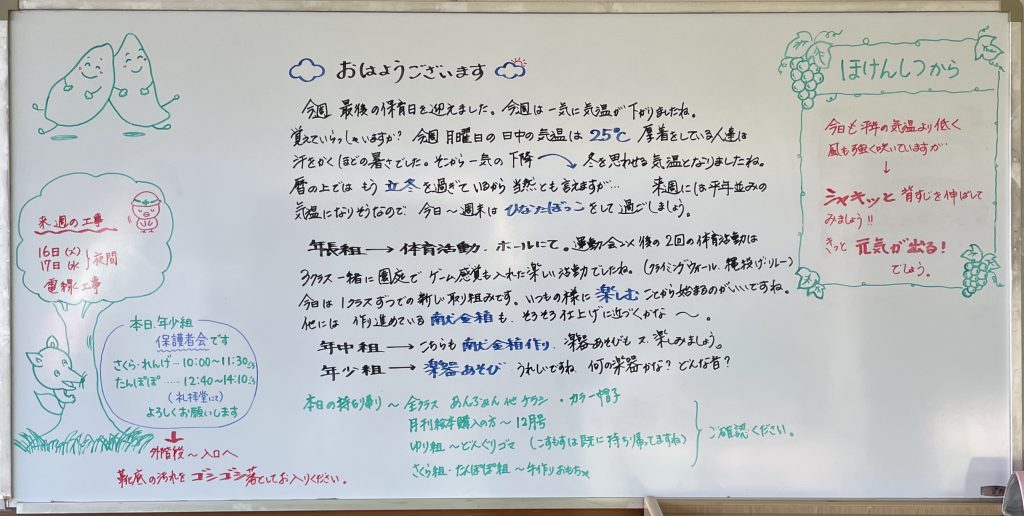 おはようございます
今週 最後の保育日を迎えました。今週は一気に気温が下がりましたね。
覚えていらっしゃいますか? 今週月曜日の日中の気温は 25℃ 厚着をしている人達は
汗をかくほどの暑さでした。そこから一気の下降 → 冬を思わせる気温となりましたね。
暦の上では もう 立冬を過ぎているから 当然とも言えますが… 来週には平年並みの
気温になりそうなので 今日〜週末は ひなたぼっこをして過ごしましょう。
年長組 → 体育活動 ホールにて。運動会 後の2回の体育活動は
3クラス一緒に園庭で ゲーム感覚も入れた楽しい活動でしたね。(クライミングウォール・縄投げ・リレー)
今日は1クラスずつでの新しい取り組みです。いつもの様に楽しむことから始まるのがいいですね。
他には 作り進めている 献金箱も、そろそろ仕上げに近づくかな 〜 。
年中組 → こちらも 献金箱作り、楽器あそびも 又、楽しみましょう。
年少組 → 楽器あそび うれしいですね 何の楽器かな? どんな音?
本日の持ち帰り 〜 全クラス あんふぁん他 チラシ ・カラー帽子
月刊絵本購入の方 〜 12月号
ゆり組 〜 どんぐりゴマ (こすもすは既に持ち帰ってますね)
さくら組・たんぽぽ組 〜 手作りおもちゃ
ご確認ください。
来週の工事
16日(火)
17日(水)
夜間
電線工事
本日、年少組
保護者会です
さくら・れんげ … 10:00〜11:30ごろ
たんぽぽ …… 12:40〜14:10ごろ
(礼拝堂にて)
よろしくお願いします
外階段〜入口へ
靴底の汚れを ゴシゴシ落としてお入りください。
ほけんしつから
今日も平年の気温より低く
風も強く吹いていますが
↓
シャキッと 背すじを伸ばして
みましょう!!
きっと 元気が出る!
でしょう。